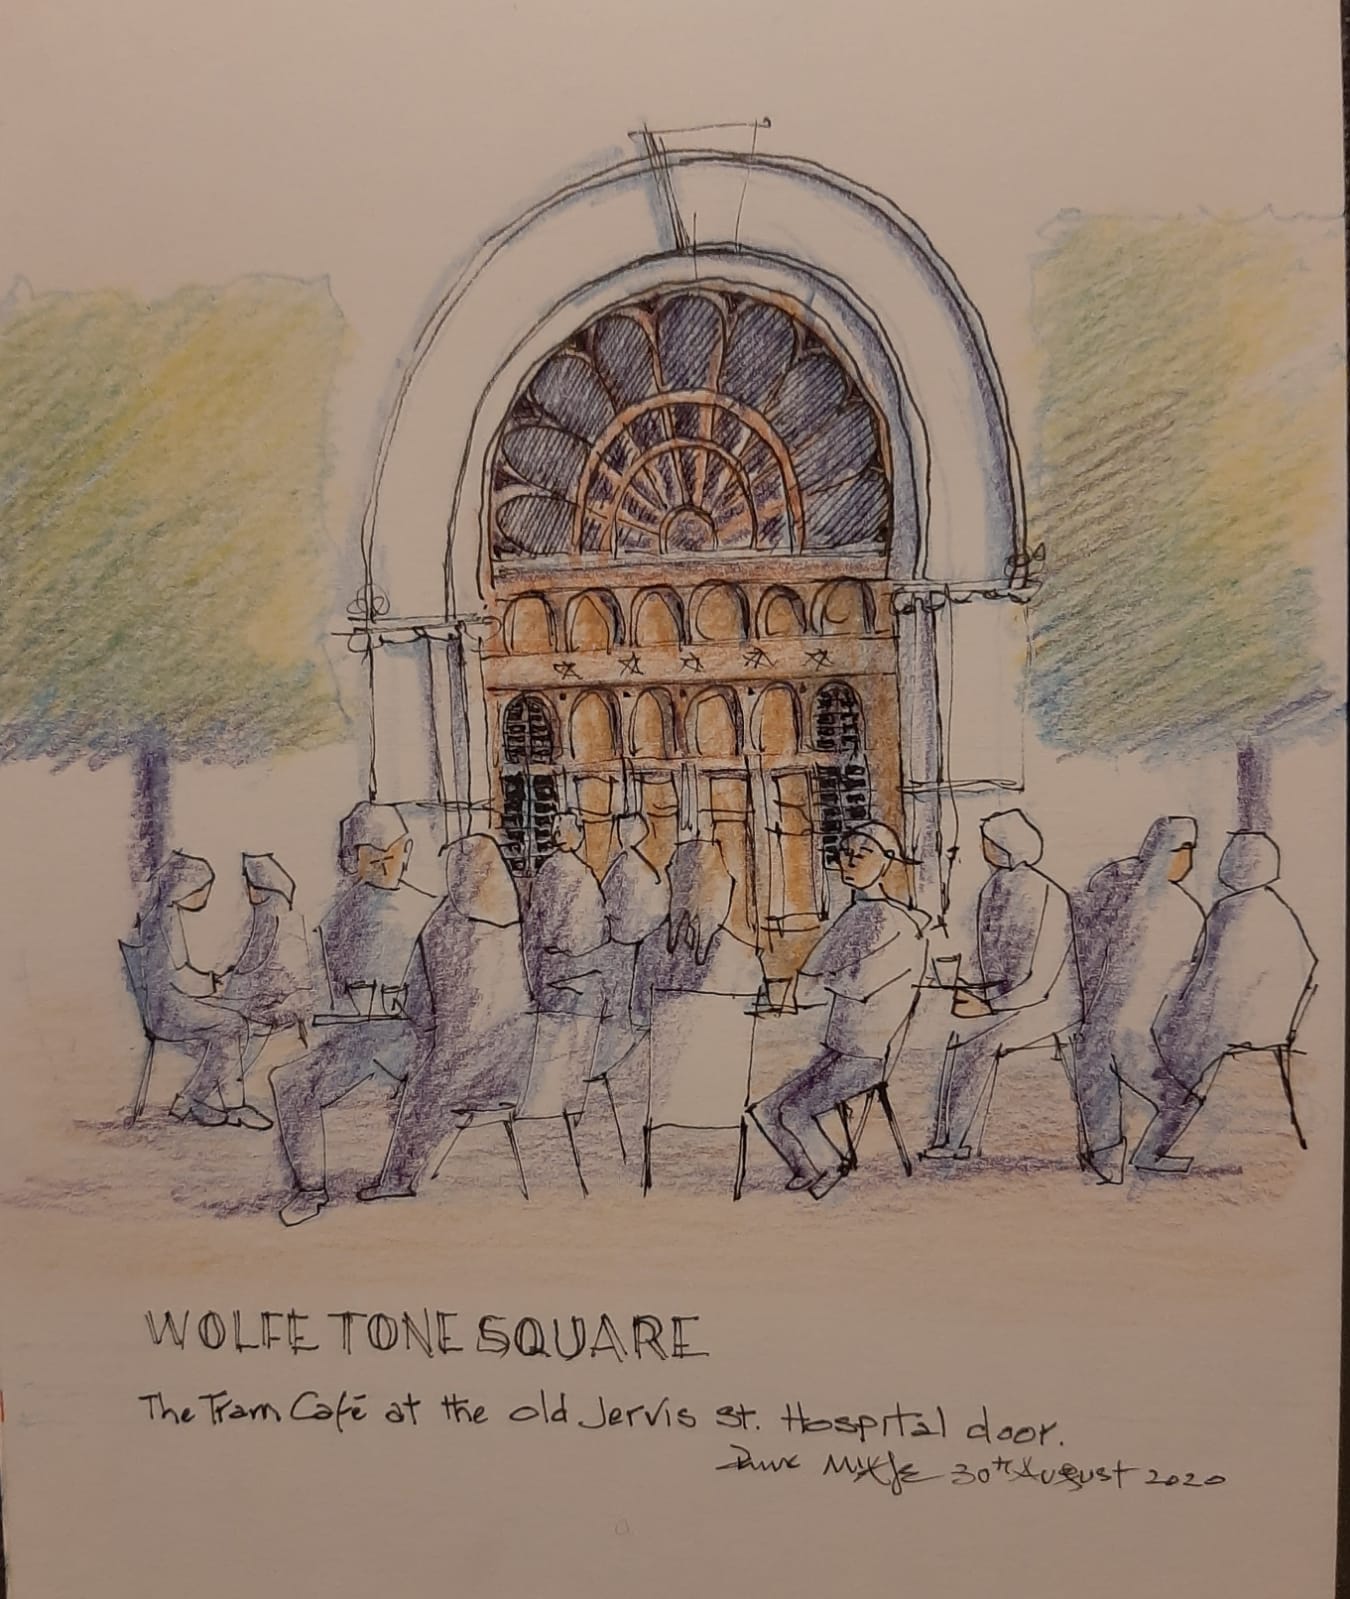 WOLFE TONE SQUARE
The Tram Café at the old Jervis St. Hospital door.
30th August 2020